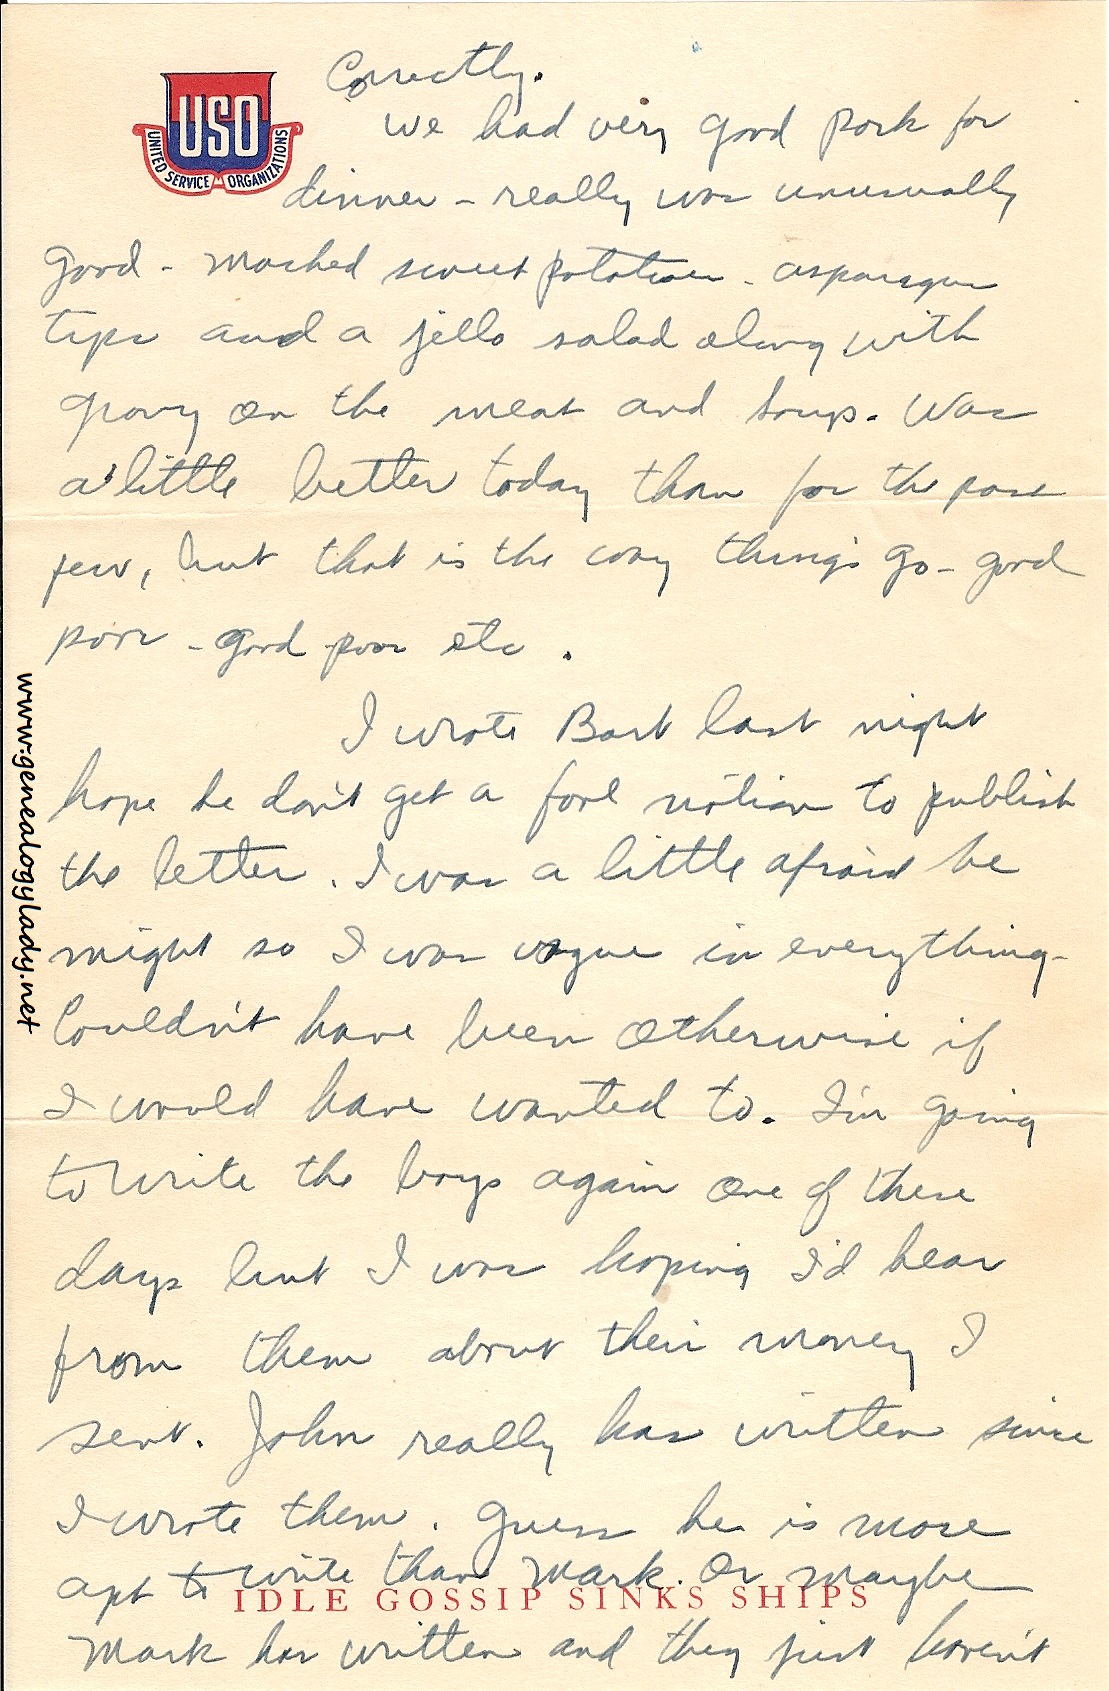 Correctly.
USO
UNITED SERVICE ORGANIZATIONS
We had very good pork for
dinner - really was unusually
good - mashed sweet potatoes - asparagus
tips and a jello salad along with
gravy on the meat and soup. Was
a little better today than for the past
few, but that is the way things go - good
poor - good poor etc.
I wrote Bart last night
hope he don't get a fool notion to publish
the letter. I was a little afraid he
might so I was vague in everything-
Couldn't have been otherwise if
I would have wanted to. I'm going
to write the boys again one of these
days but I was hoping I'd hear
from them about their money I
sent. John really has written since
I wrote them. Guess he is more
apt to write than Mark. Or maybe
IDLE GOSSIP SINKS SHIPS
Mark has written and they just haven't
www.genealogylady.net